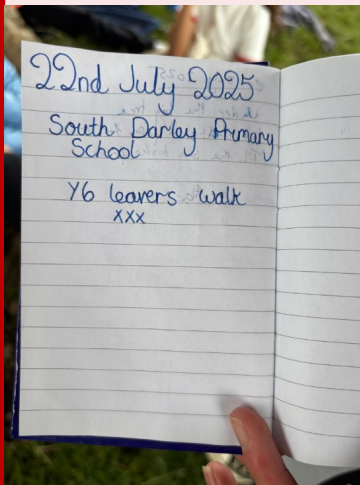 22nd July 2025
South Darley Primary
School
Y6 leavers walk
xxx